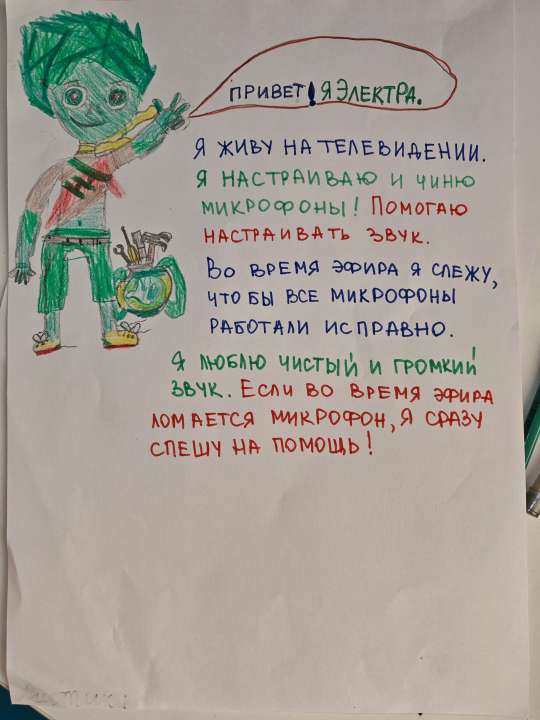 ПРИВЕТ! Я ЭЛЕКТРА.
Я ЖИВУ НА ТЕЛЕВИДЕНИИ.
Я НАСТРАИВАЮ И ЧИНЮ
МИКРОФОНЫ! ПОМОГАЮ
НАСТРАИВАТЬ ЗВУК.
ВО ВРЕМЯ ЭФИРА Я СЛЕЖУ,
ЧТО БЫ ВСЕ МИКРОФОНЫ
РАБОТАЛИ ИСПРАВНО.
Я ЛЮБЛЮ ЧИСТЫЙ И ГРОМКИЙ
ЗВУК. ЕСЛИ ВО ВРЕМЯ ЭФИРА
ЛОМАЕТСЯ МИКРОФОН, Я СРАЗУ
СПЕШУ НА ПОМОЩЬ!